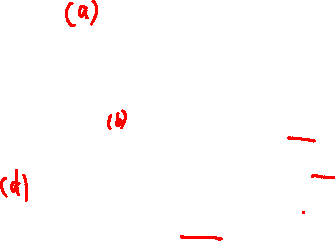 (a)
(b)
(d)